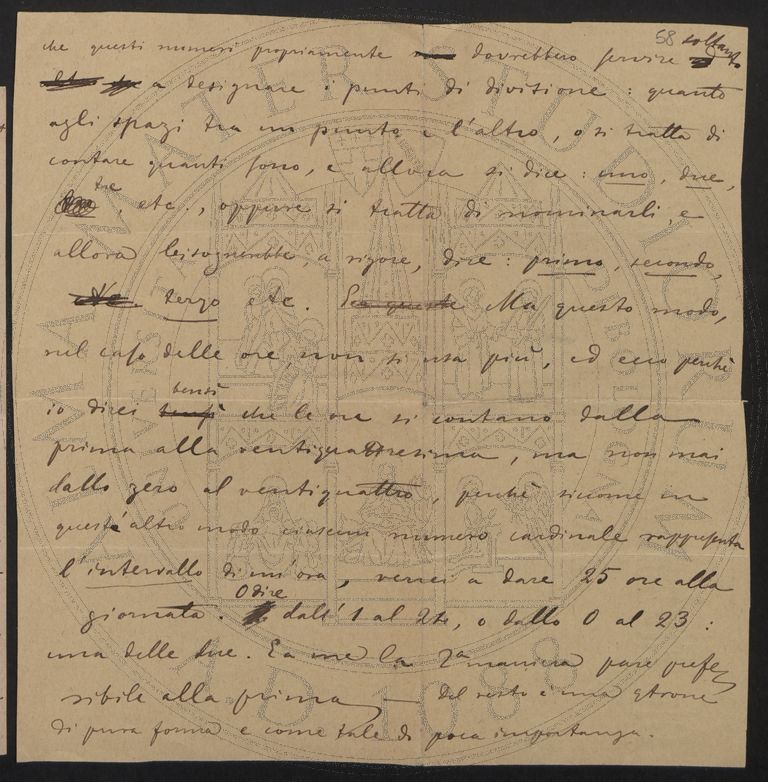 58
che questi numeri propriamente dovrebbero servire soltanto
a designare i punti di divisione: quanto
agli spazi tra un punto e l'altro, o si tratta di
contare quanti sono, e allora si dice: uno, due,
tre, etc., oppure si tratta di nominarli, e
allora bisognerebbe, a rigore, dire: primo, secondo,
terzo etc. Ma questo modo,
nel caso delle ore, non si usa più, ed ecco perchè
io direi bensì che le ore si contano dalla
prima alla ventiquattresima, ma non mai
dallo zero al ventiquattro, perchè siccome in
quest'altro modo ciascun numero cardinale rappresenta
l'intervallo di un'ora, verrei a dare 25 ore alla
giornata. O dire dall'1 al 24, o dallo 0 al 23:
una delle due. E a me la 2a maniera pare prefe
ribile alla prima — Del resto è una
di pura forma e come tale di poca importanza.
ALMA MATER STUDIORUM
A.D. 1088